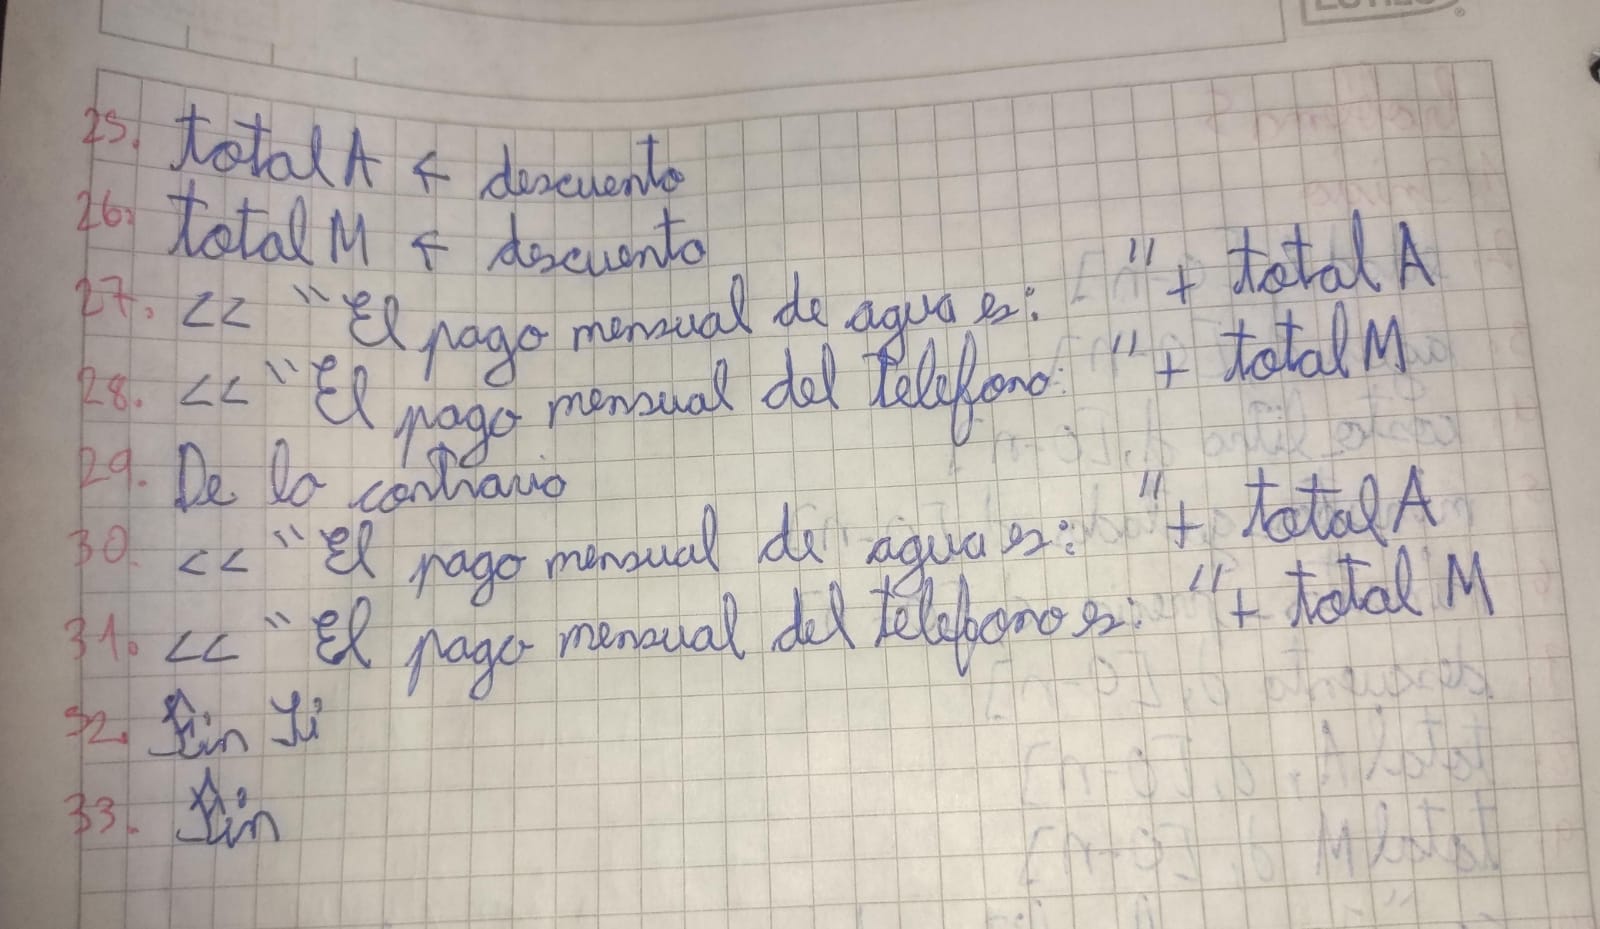 25. total A ← descuento
26. total M ← descuento
27. << "El pago mensual de agua es: " + total A
28. << "El pago mensual del telefono: " + total M
29. De lo contrario
30. << "El pago mensual de agua es: " + total A
31. << "El pago mensual del telefono es: " + total M
32. Fin Si
33. Fin